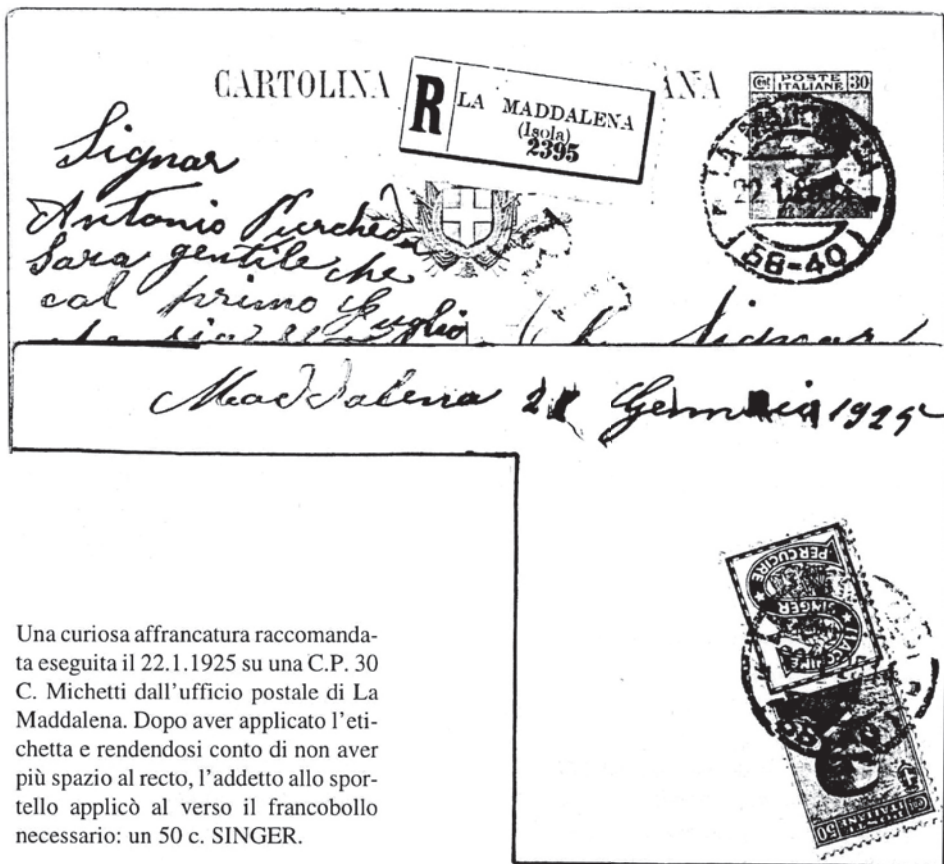 CARTOLINA ANA
R LA MADDALENA
(Isola)
2395
Cent POSTE 30
ITALIANE
(68-40)
Signor
Antonio
Sara gentile che
col primo Guglio
Signor
Maddalena 21 Gennaio 1925
PER CUCIRE
SINGER
MACCHINE
50
ITALIANE
Una curiosa affrancatura raccomanda-
ta eseguita il 22.1.1925 su una C.P. 30
C. Michetti dall'ufficio postale di La
Maddalena. Dopo aver applicato l'eti-
chetta e rendendosi conto di non aver
più spazio al recto, l'addetto allo spor-
tello applicò al verso il francobollo
necessario: un 50 c. SINGER.